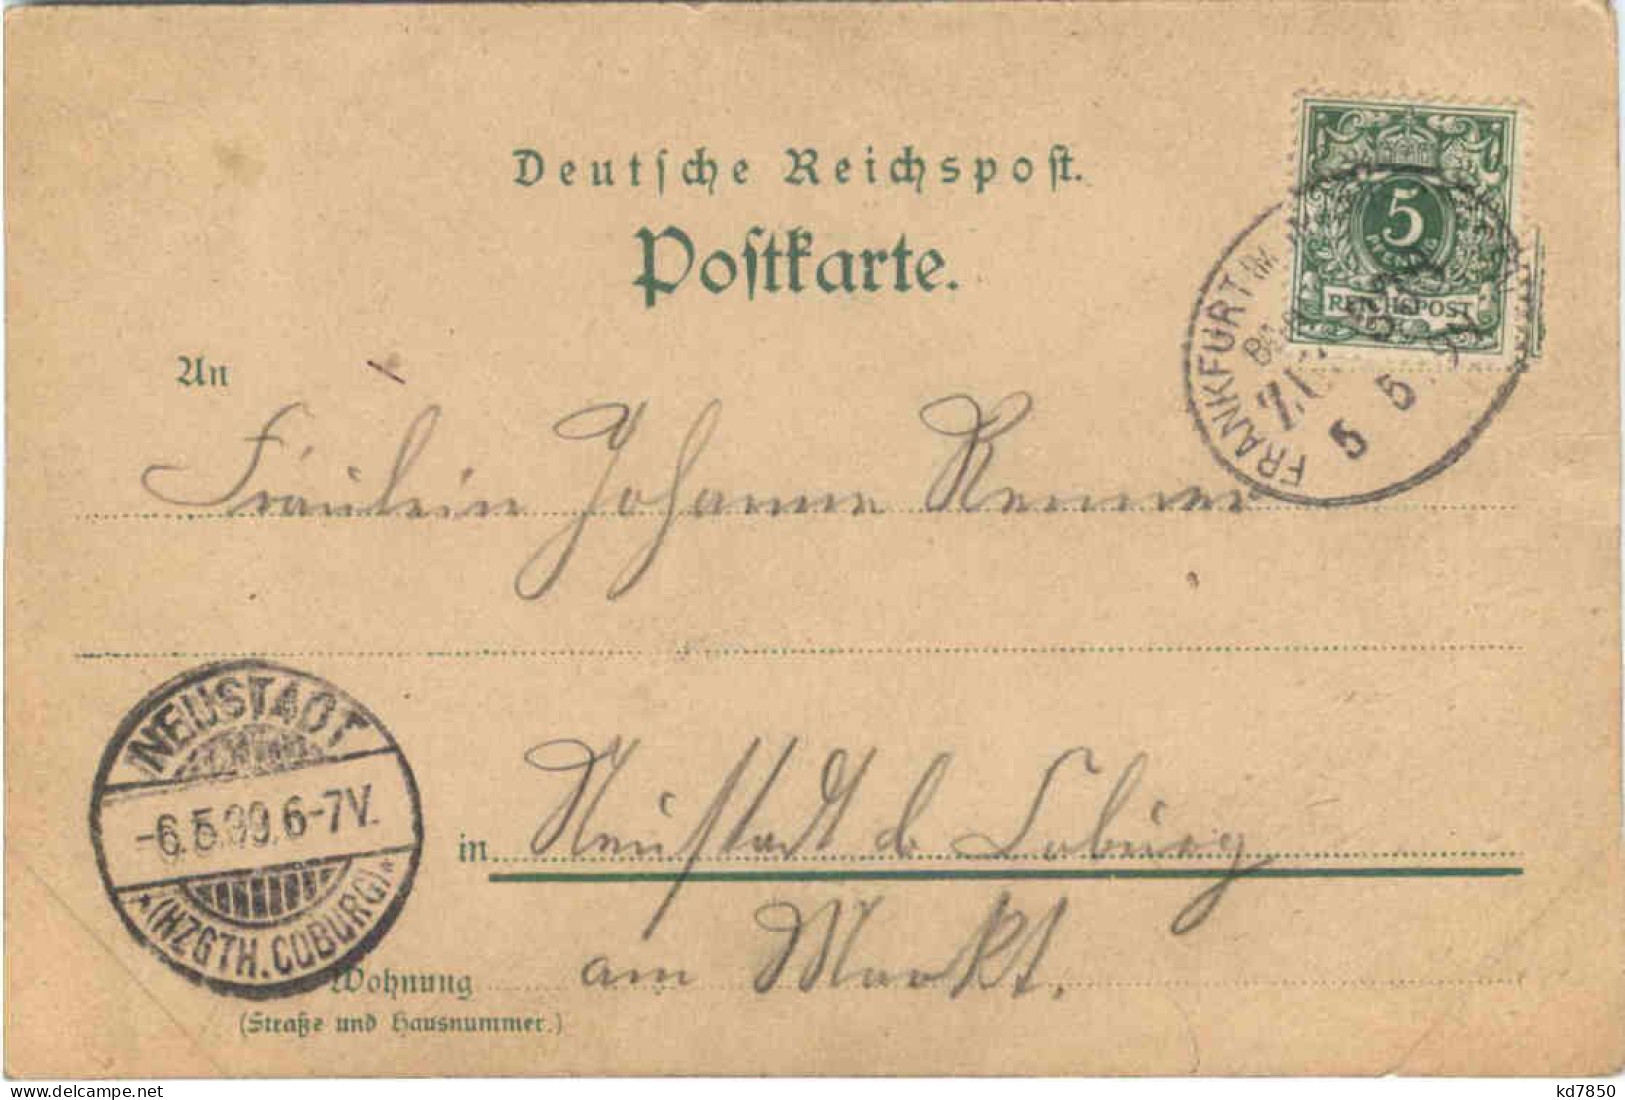 Deutsche Reichspost.
Postkarte.
5
PFENNIG
REICHSPOST
FRANKFURT (M
ZUG
5 5
An
Fräulein Johanna Renner
NEUSTADT
-6.5.99.6-7V.
*(HZGTH.COBURG)*
in Neustadt b Coburg
am Markt.
Wohnung
(Straße und Hausnummer.)
kd7850